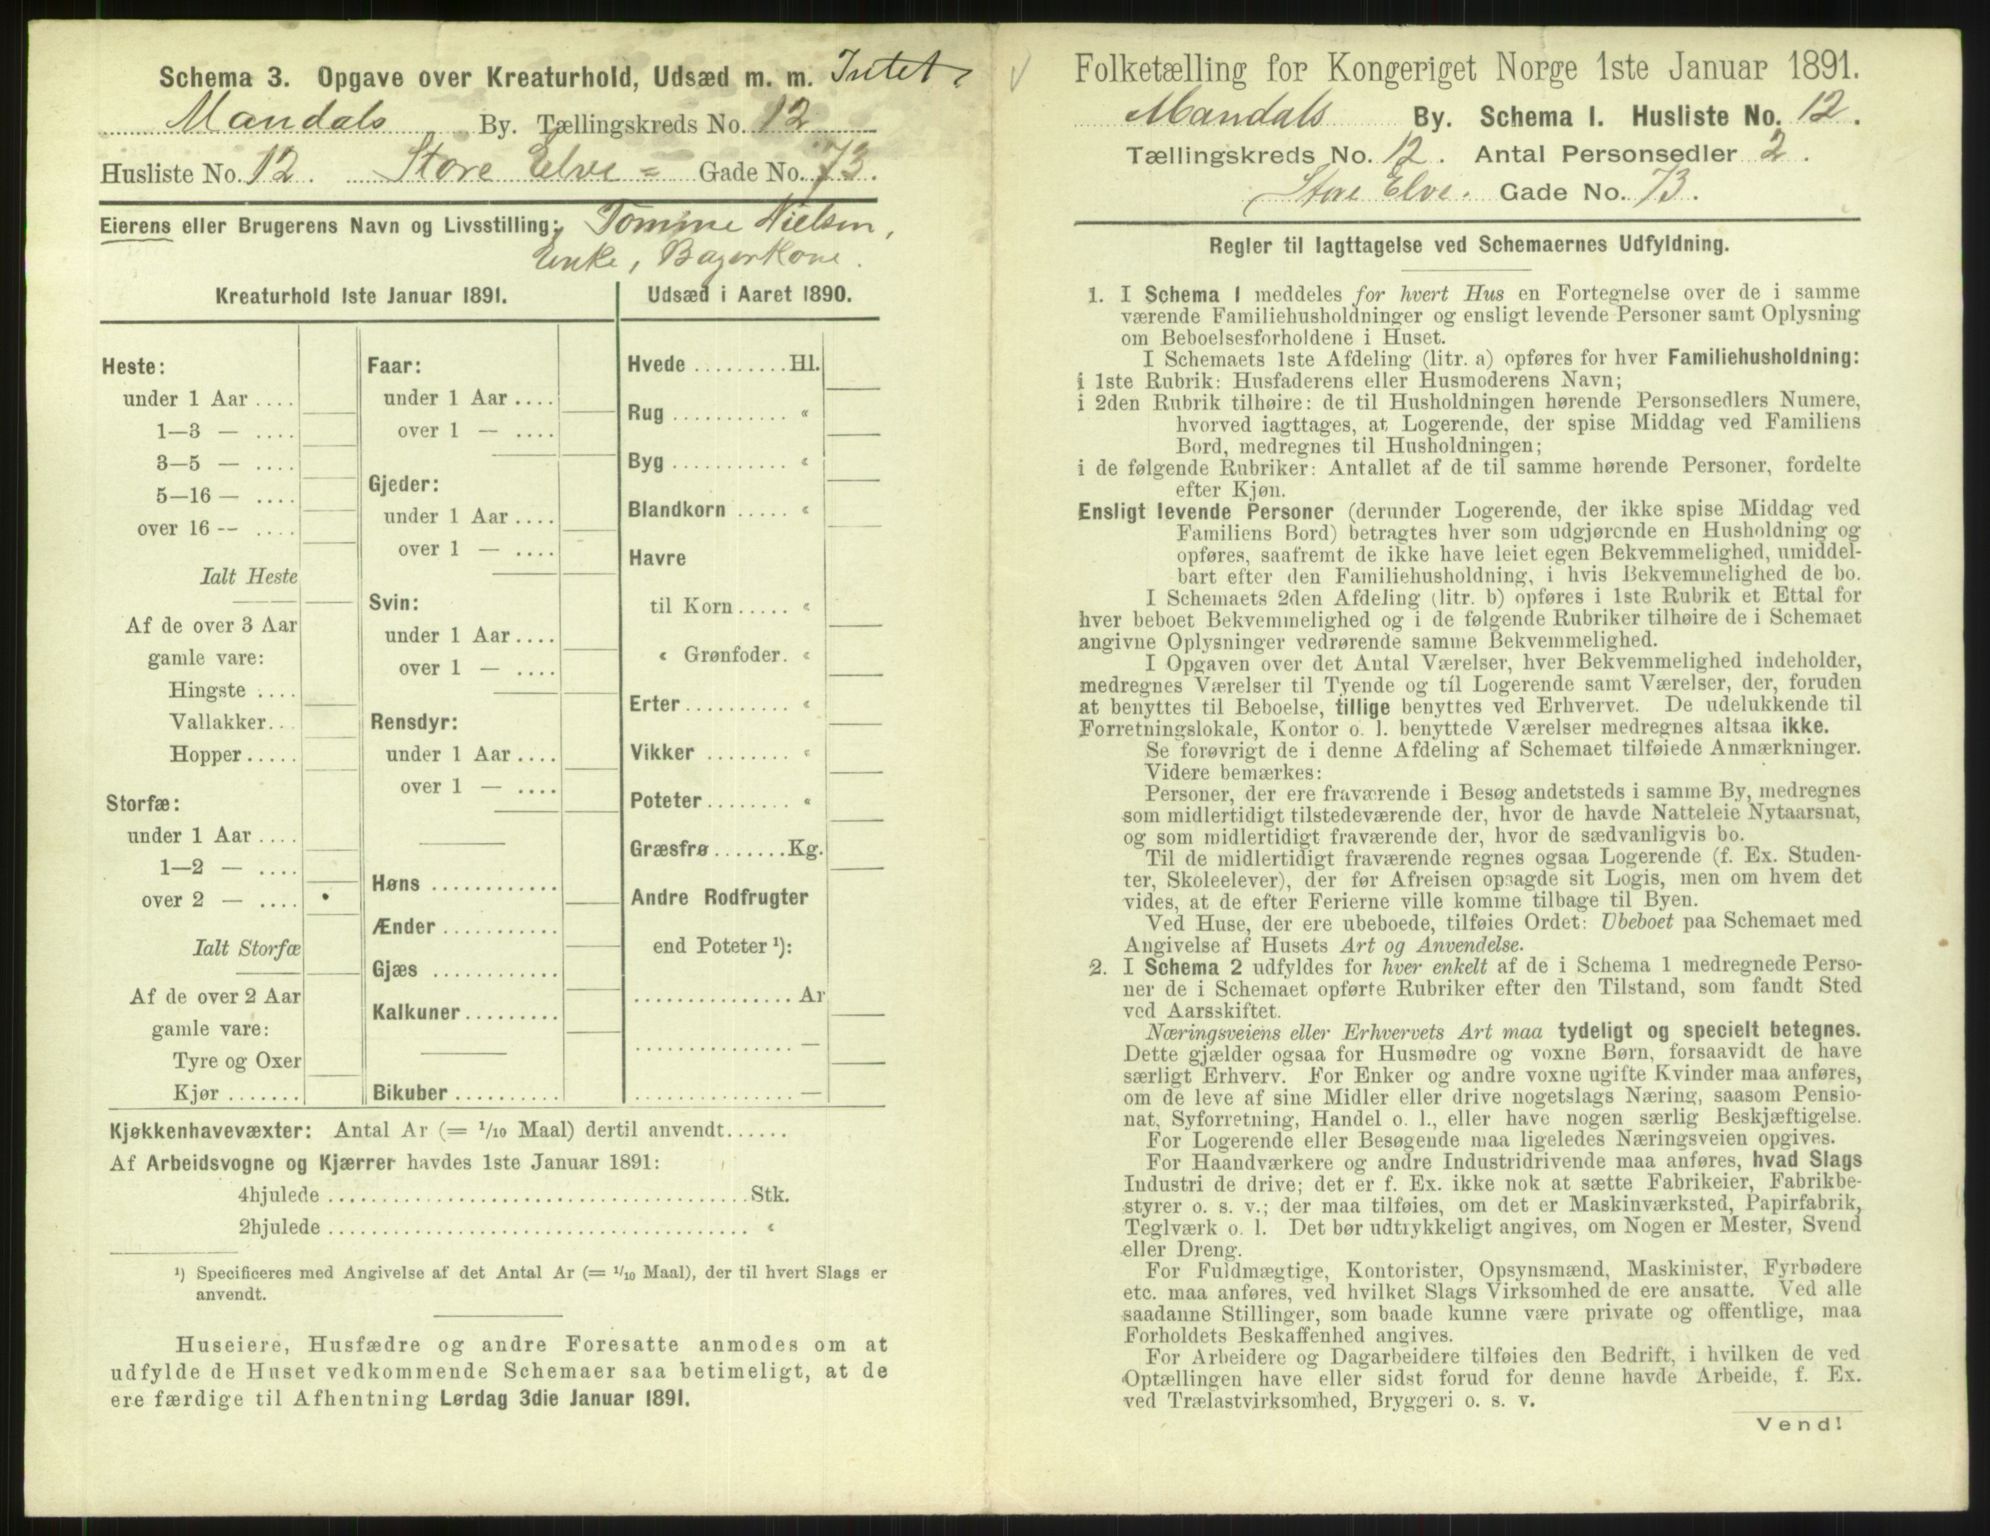 Schema 3. Opgave over Kreaturhold, Udsæd m. m. Intet.
Mandals By. Tællingskreds No. 12
Husliste No. 12. Store Elve = Gade No. 73.
Eierens eller Brugerens Navn og Livsstilling: Tomine Nielsen,
Enke, Bagerkone.
Kreaturhold 1ste Januar 1891.
Heste:
under 1 Aar ....
1—3 — ....
3—5 — ....
5—16 — ....
over 16 -- ....
Ialt Heste
Af de over 3 Aar
gamle vare:
Hingste ....
Vallakker...
Hopper.....
Storfæ:
under 1 Aar ....
1—2 — ....
over 2 — ....
Ialt Storfæ
Af de over 2 Aar
gamle vare:
Tyre og Oxer
Kjør .......
Faar:
under 1 Aar ....
over 1 — ....
Gjeder:
under 1 Aar ....
over 1 — ....
Svin:
under 1 Aar ....
over 1 — ....
Rensdyr:
under 1 Aar ....
over 1 — ....
Høns ............
Ænder ...........
Gjæs ............
Kalkuner.........
Bikuber ..........
Udsæd i Aaret 1890.
Hvede .........Hl.
Rug ........... «
Byg ........... «
Blandkorn ..... «
Havre
til Korn..... «
« Grønfoder. «
Erter.......... «
Vikker ........ «
Poteter........ «
Græsfrø.......Kg.
Andre Rodfrugter
end Poteter ¹):
...............Ar
............... —
............... —
Kjøkkenhavevæxter: Antal Ar (= 1/10 Maal) dertil anvendt......
Af Arbeidsvogne og Kjærrer havdes 1ste Januar 1891:
4hjulede ........................................Stk.
2hjulede ........................................ «
¹) Specificeres med Angivelse af det Antal Ar (= 1/10 Maal), der til hvert Slags er
anvendt.
Huseiere, Husfædre og andre Foresatte anmodes om at
udfylde de Huset vedkommende Schemaer saa betimeligt, at de
ere færdige til Afhentning Lørdag 3die Januar 1891.
Folketælling for Kongeriget Norge 1ste Januar 1891.
Mandals By. Schema I. Husliste No. 12.
Tællingskreds No. 12. Antal Personsedler 2.
Store Elve. Gade No. 73.
Regler til Iagttagelse ved Schemaernes Udfyldning.
1. I Schema 1 meddeles for hvert Hus en Fortegnelse over de i samme
værende Familiehusholdninger og ensligt levende Personer samt Oplysning
om Beboelsesforholdene i Huset.
I Schemaets 1ste Afdeling (litr. a) opføres for hver Familiehusholdning:
i 1ste Rubrik: Husfaderens eller Husmoderens Navn;
i 2den Rubrik tilhøire: de til Husholdningen hørende Personsedlers Numere,
hvorved iagttages, at Logerende, der spise Middag ved Familiens
Bord, medregnes til Husholdningen;
i de følgende Rubriker: Antallet af de til samme hørende Personer, fordelte
efter Kjøn.
Ensligt levende Personer (derunder Logerende, der ikke spise Middag ved
Familiens Bord) betragtes hver som udgjørende en Husholdning og
opføres, saafremt de ikke have leiet egen Bekvemmelighed, umiddel-
bart efter den Familiehusholdning, i hvis Bekvemmelighed de bo.
I Schemaets 2den Afdeling (litr. b) opføres i 1ste Rubrik et Ettal for
hver beboet Bekvemmelighed og i de følgende Rubriker tilhøire de i Schemaet
angivne Oplysninger vedrørende samme Bekvemmelighed.
I Opgaven over det Antal Værelser, hver Bekvemmelighed indeholder,
medregnes Værelser til Tyende og til Logerende samt Værelser, der, foruden
at benyttes til Beboelse, tillige benyttes ved Erhvervet. De udelukkende til
Forretningslokale, Kontor o. l. benyttede Værelser medregnes altsaa ikke.
Se forøvrigt de i denne Afdeling af Schemaet tilføiede Anmærkninger.
Videre bemærkes:
Personer, der ere fraværende i Besøg andetsteds i samme By, medregnes
som midlertidigt tilstedeværende der, hvor de havde Natteleie Nytaarsnat,
og som midlertidigt fraværende der, hvor de sædvanligvis bo.
Til de midlertidigt fraværende regnes ogsaa Logerende (f. Ex. Studen-
ter, Skoleelever), der før Afreisen opsagde sit Logis, men om hvem det
vides, at de efter Ferierne ville komme tilbage til Byen.
Ved Huse, der ere ubeboede, tilføies Ordet: Ubeboet paa Schemaet med
Angivelse af Husets Art og Anvendelse.
2. I Schema 2 udfyldes for hver enkelt af de i Schema 1 medregnede Perso-
ner de i Schemaet opførte Rubriker efter den Tilstand, som fandt Sted
ved Aarsskiftet.
Næringsveiens eller Erhvervets Art maa tydeligt og specielt betegnes.
Dette gjælder ogsaa for Husmødre og voxne Børn, forsaavidt de have
særligt Erhverv. For Enker og andre voxne ugifte Kvinder maa anføres,
om de leve af sine Midler eller drive nogetslags Næring, saasom Pensio-
nat, Syforretning, Handel o. l., eller have nogen særlig Beskjæftigelse.
For Logerende eller Besøgende maa ligeledes Næringsveien opgives.
For Haandværkere og andre Industridrivende maa anføres, hvad Slags
Industri de drive; det er f. Ex. ikke nok at sætte Fabrikeier, Fabrikbe-
styrer o. s. v.; der maa tilføies, om det er Maskinværksted, Papirfabrik,
Teglværk o. l. Det bør udtrykkeligt angives, om Nogen er Mester, Svend
eller Dreng.
For Fuldmægtige, Kontorister, Opsynsmænd, Maskinister, Fyrbødere
etc. maa anføres, ved hvilket Slags Virksomhed de ere ansatte. Ved alle
saadanne Stillinger, som baade kunne være private og offentlige, maa
Forholdets Beskaffenhed angives.
For Arbeidere og Dagarbeidere tilføies den Bedrift, i hvilken de ved
Optællingen have eller sidst forud for denne havde Arbeide, f. Ex.
ved Trælastvirksomhed, Bryggeri o. s. v.
Vend!